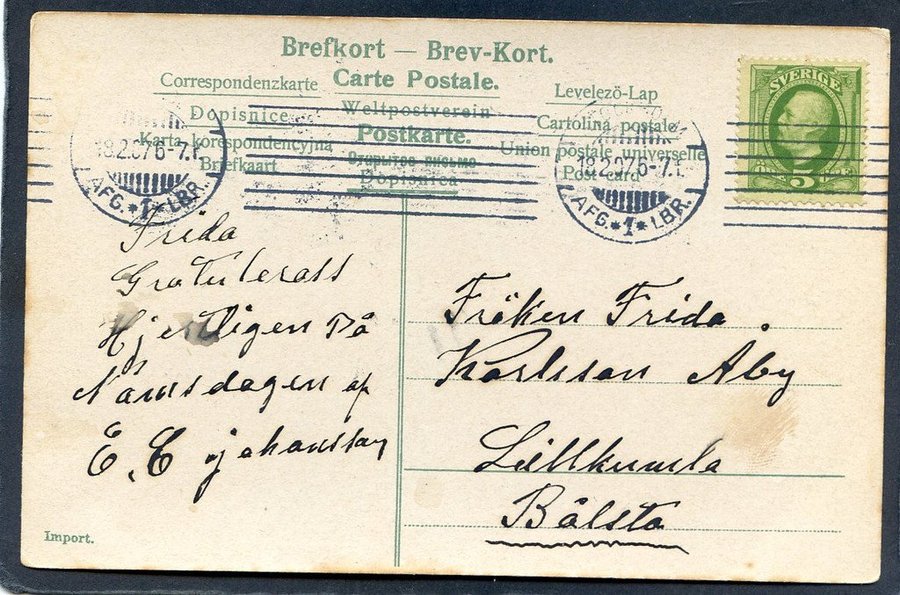 Brefkort — Brev-Kort.
Correspondenzkarte Carte Postale. Levelezö-Lap
Dopisnice Weltpostverein Cartolina postale
Karta korespondencyjna Postkarte. Union postale universelle
Briefkaart Открытое письмо Post-card
Dopisnica
18.2.07 6-7.
AFG. *1* LBR.
18.2.07 6-7.
AFG. *1* LBR.
SVERIGE
5
Frida
Gratuleras
Hjertligen På
Namsdagen af
E. E johansson
Fröken Frida
Karlsson Åby
Lillkumla
Bålsta
Import.